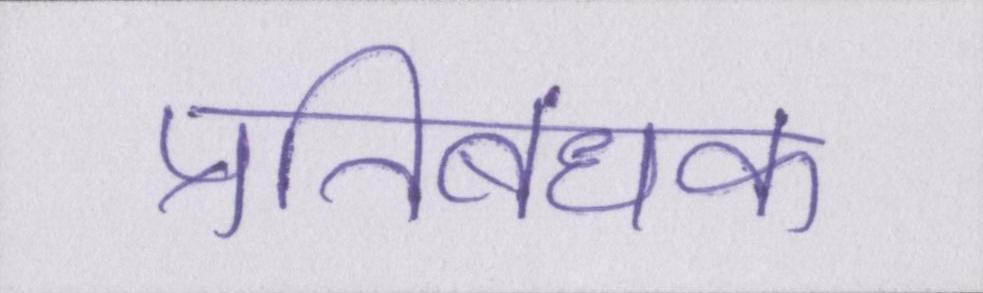 प्रतिबंधक